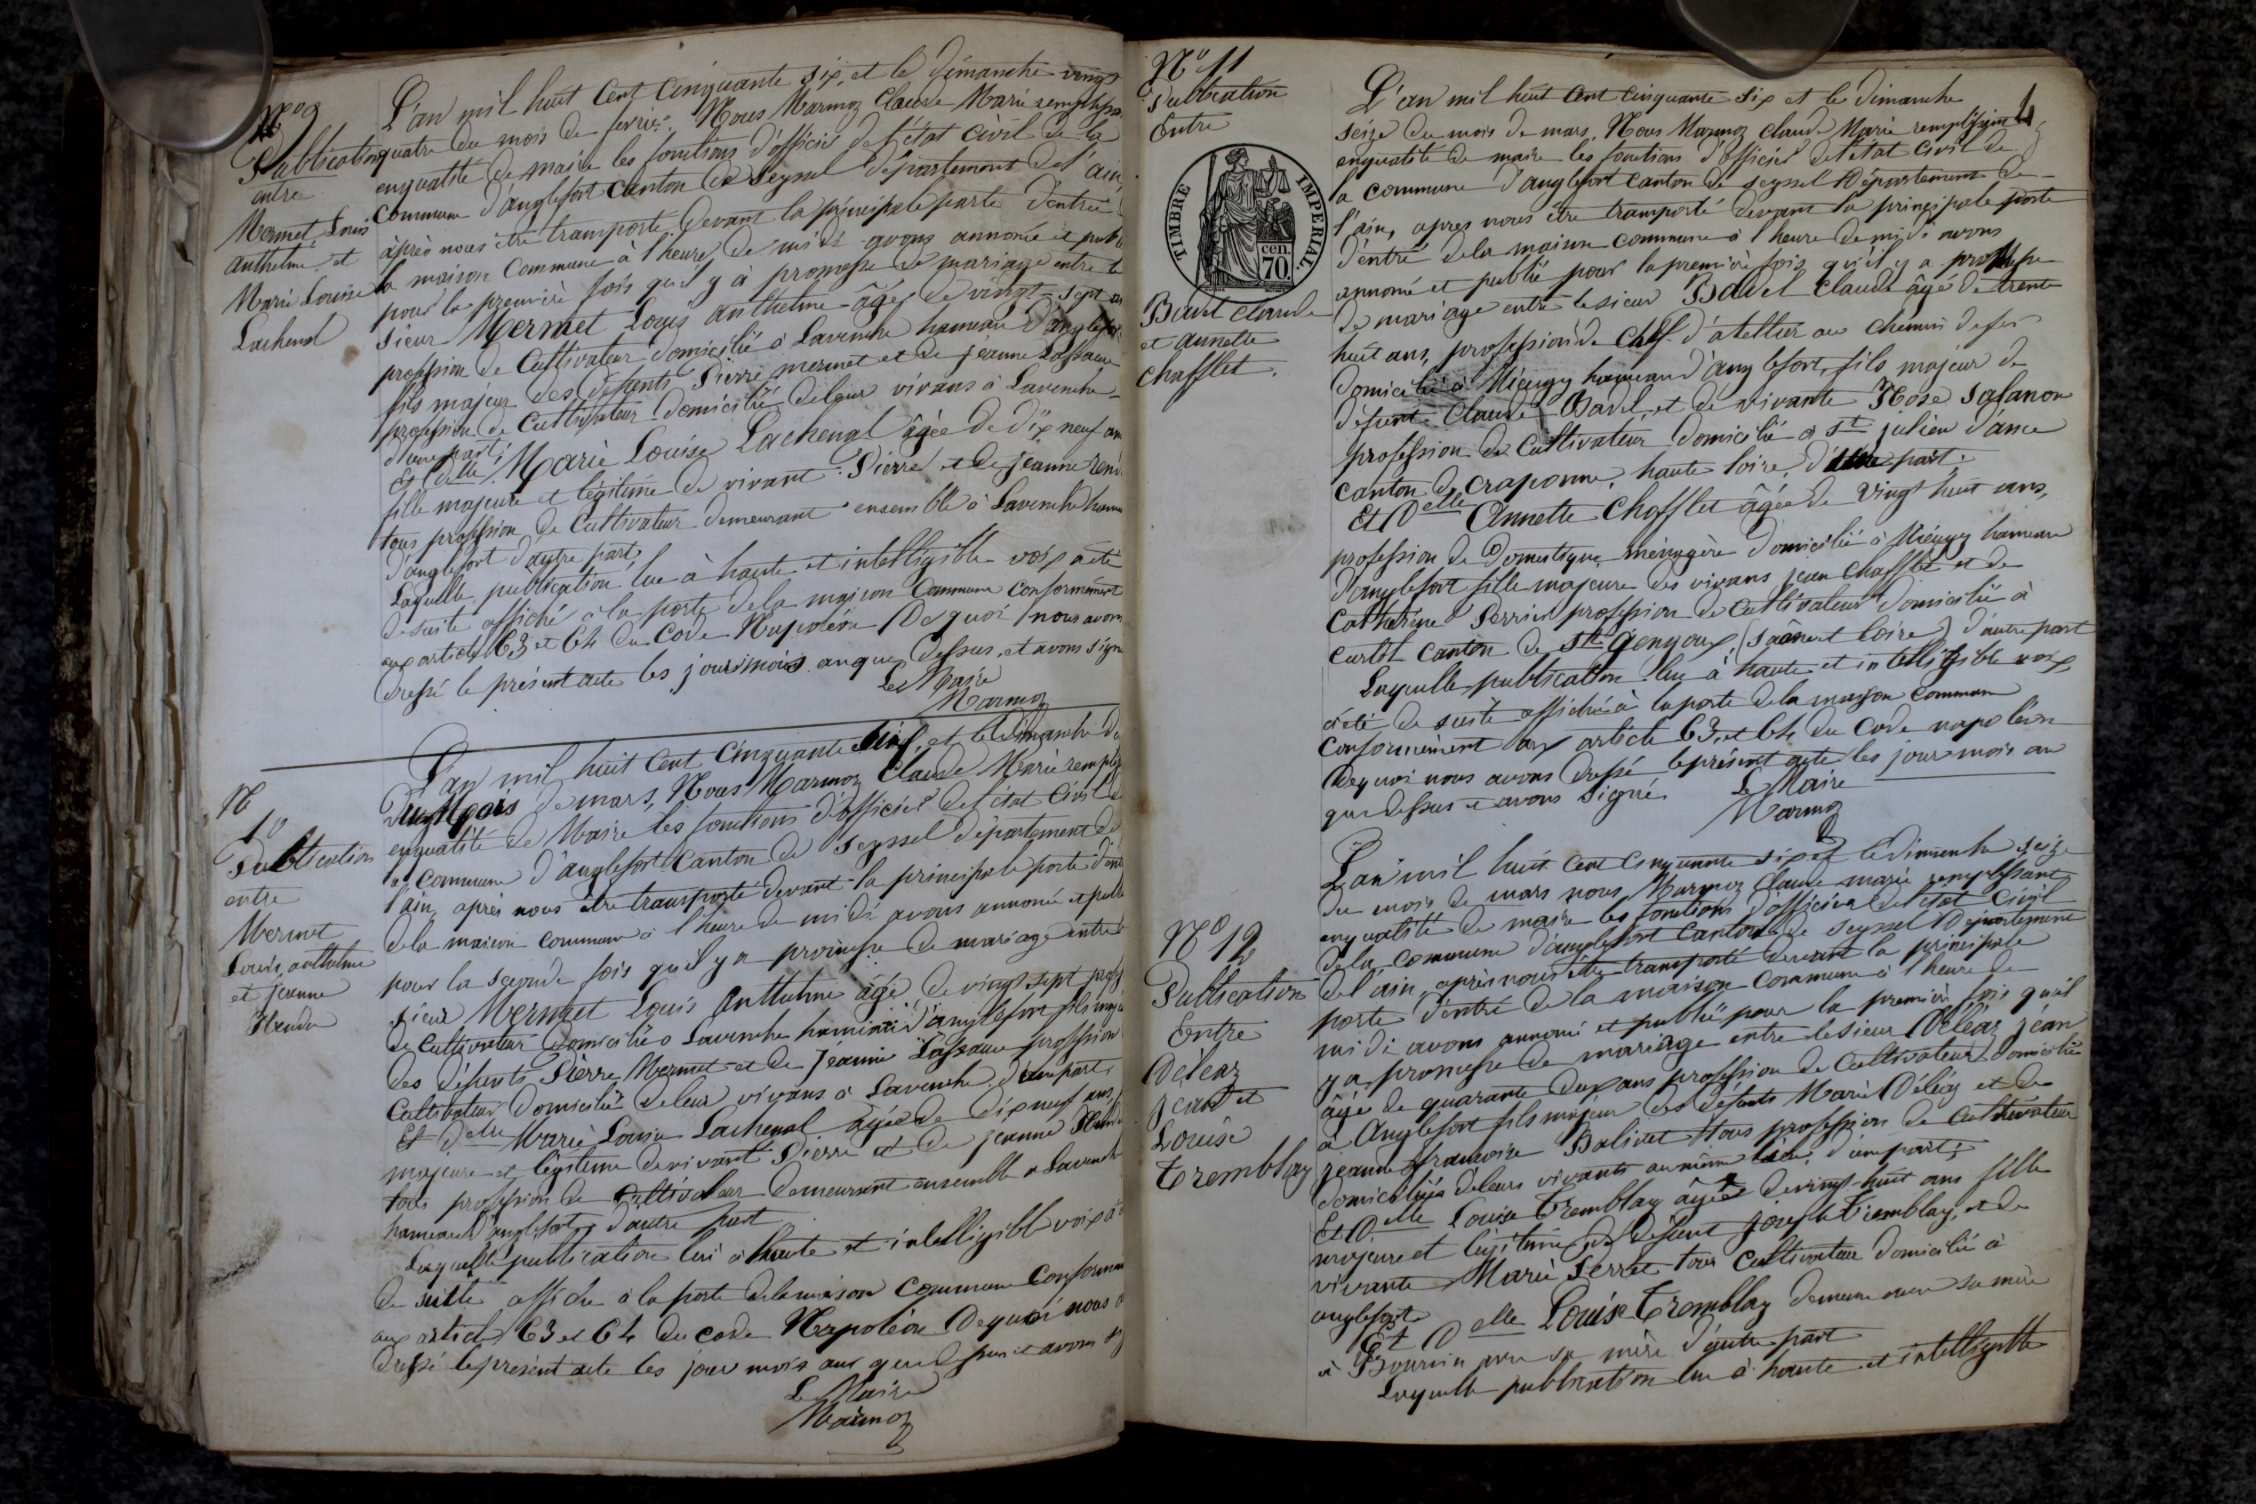 N° 9
Publication
entre
Mermet Louis
anthelme et
Marie Louise
Lachenal
L'an mil huit Cent Cinquante six, et le dimanche vingt
quatre du mois de fevrier. Nous Marmoz Claude Marie remplissa
enqualité de maire les fonctions d'officier de l'état civil de la
commune d'anglefort canton de Seyssel département de l'ain,
àprès nous être transporté devant la principale porte d'entrée
la maison commune à l'heure de midi avons annoncé et publié
pour la premiere fois qu'il y à promesse de mariage entre le
sieur Mermet Louis anthelme âgé de vingt-sept ans
profession de Cultivateur domicilié à Lavenche hameau d'anglefort
fils majeur des défunts Pierre mermet et de jeanne Lassaue
profession de Cultivateur domicilié deleur vivans à Lavenche
d'une part;
Et Delle Marie Louise Lachenal âgée de dix neuf ans
fille majeure et légitime de vivant Pierre et de jeanne
tous profession de Cultivateur demeurant ensemble à Lavenche hameau
d'anglefort d'autre part,
Laquelle publication lue à haute et intelligible voix a été
desuite affiché à la porte de la maison Commune conformément
aux article 63 et 64 du Code Napoléon De quoi nous avons
Dressé le présent acte les jour mois anque dessus, et avons signé
Le Maire
Marmoz
N
10
Publication
entre
Mermet
Louis, anthelme
et jeanne
L'an mil huit Cent Cinquante Six, et le dimanche
Du Mois de mars, Nous Marmoz Claude Marie
enqualité de Maire les fonctions d'officier de l'état Civil
commune d'anglefort Canton de Seyssel département de
l'ain, après nous être transporté devant la principale porte
de la maison commune à l'heure de midi avons annoncé et publié
pour la seconde fois qu'il y a promesse de mariage entre
sieur Mermet Louis anthelme âgé de vingt sept
de Cultivateur domicilié a Lavenche hameau d'anglefort fils
des défunts Pierre Mermet et de Jeanne Lassaue profession
Cultivateur domicilié de leur vivans à Lavenche, d'une part.
Et delle Marie Louise Lachenal âgée de dix neuf ans,
majeure et légitime devivant Pierre et de jeanne
tous profession de Cultivateur demeurant ensemble a Lavenche
hameau d'anglefort, d'autre part
Laquelle publication lui à haute et intelligible voix
de suite affiche à la porte de la maison commune
aux article 63 et 64 du code Napoléon De quoi nous
Dressé le présent acte les jour mois
Le Maire
Marmoz
N° 11
Publication
Entre
TIMBRE IMPERIAL.
cen.
70.
Badel claude
et annette
chafflet.
4
L'an mil huit cent cinquante six et le dimanche
seize du mois de mars, Nous Marmoz claude Marie remplissant
enqualité de maire les fonctions d'officier de l'état civil de
la commune d'anglefort canton de seyssel Département de
l'ain, apres nous être transporté devant la principale porte
d'entré de la maison commune à l'heure de midi avons
annoncé et publié pour la première fois qu'il y a promesse
de mariage entre le sieur Badel Claude âgé de trente
huit ans, profession de Chef d'atellier au chemin de fer
domicilié à Miéugy hameau d'anglefort, fils majeur de
défunt Claude Badel, et de vivante Rose Safanon
profession de Cultivateur domicilié a st julien d'ance
canton de craponne, haute loire, d'une part.
Et Delle Annette Chofflet âgée de Vingt huit ans,
profession de Domestique ménagère domicilié à Miéugy hameau
d'anglefort fille majeure des vivans jean Chafflet et de
Catherine Perrier profession de Cultivateur domicilié à
curtil canton de ste Gengoux, (saône et loire) d'autre part
Laquelle publication lue à haute et intelligible voix,
a été de suite affiché à la porte de la maison commune
conformément aux article 63 et 64 du Code napoléon
Dequoi nous avons dressé leprésent acte les jour mois an
que dessus et avons signé
Le Maire
Marmoz
N° 12
Publication
Entre
Déléaz
jean et
Louise
Tremblay
L'an mil huit cent cinquante six et le dimanche seize
du mois de mars nous Marmoz Claude marie remplissant
enqualité de maire les fonctions d'officier de l'état civil
de la commune d'anglefort canton de Seyssel Département
de l'ain, après nous être transporté devant la principale
porte d'entré de la maison commune à l'heure de
midi avons annoncé et publié pour la première fois qu'il
y a promesse de mariage entre le sieur Déléaz jean
âgé de quarante deux ans profession de Cultivateur domicilié
à Anglefort fils majeur des défunts Marie Déléaz et de
jeanne françoise Balivet tous profession de Cultivateur
domicilié à deleurs vivants au même lieu, d'une part;
Et Delle Louise Tremblay âgée de vingt-huit ans fille
majeure et légitime de défunt Joseph Tremblay, et de
vivante Marie Perret tous Cultivateur domicilié à
anglefort
Et Delle Louise Tremblay demeure avec sa mère
a sa mère d'autre part
Laquelle publication lue à haute et intelligible